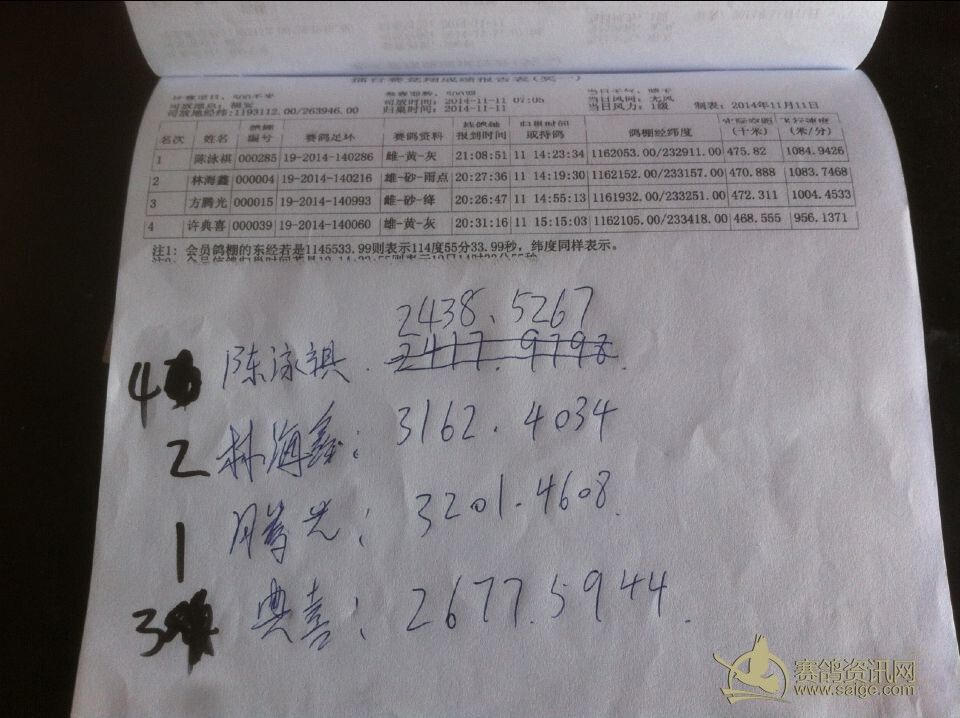 擂台赛竞翔成绩报告表(奖一)
司放地点: 福安 司放时间: 2014-11-11 07:05 当日风向: 无风
司放地经纬:1193112.00/263946.00 归巢时间: 2014-11-11 当日风力: 1级 制表: 2014年11月11日
名次 姓名 鸽棚编号 赛鸽足环 赛鸽资料 挂鸽钟报到时间 归巢时间或持鸽 鸽棚经纬度 实际空距(千米) 飞行速度(米/分)
1 陈泳祺 000285 19-2014-140286 雌-黄-灰 21:08:51 11 14:23:34 1162053.00/232911.00 475.82 1084.9426
2 林海鑫 000004 19-2014-140216 雄-砂-雨点 20:27:36 11 14:19:30 1162152.00/233157.00 470.888 1083.7468
3 方腾光 000015 19-2014-140993 雌-砂-绛 20:26:47 11 14:55:13 1161932.00/233251.00 472.311 1004.4533
4 许典喜 000039 19-2014-140060 雄-黄-灰 20:31:16 11 15:15:03 1162105.00/233418.00 468.555 956.1371
注1: 会员鸽棚的东经若是1145533.99则表示114度55分33.99秒，纬度同样表示。
2438.5267
4 陈泳祺. 2417.9798.
2 林海鑫: 3162.4034
1 腾光: 3201.4608.
3 典喜: 2677.5944.
赛鸽资讯网
www.saige.com